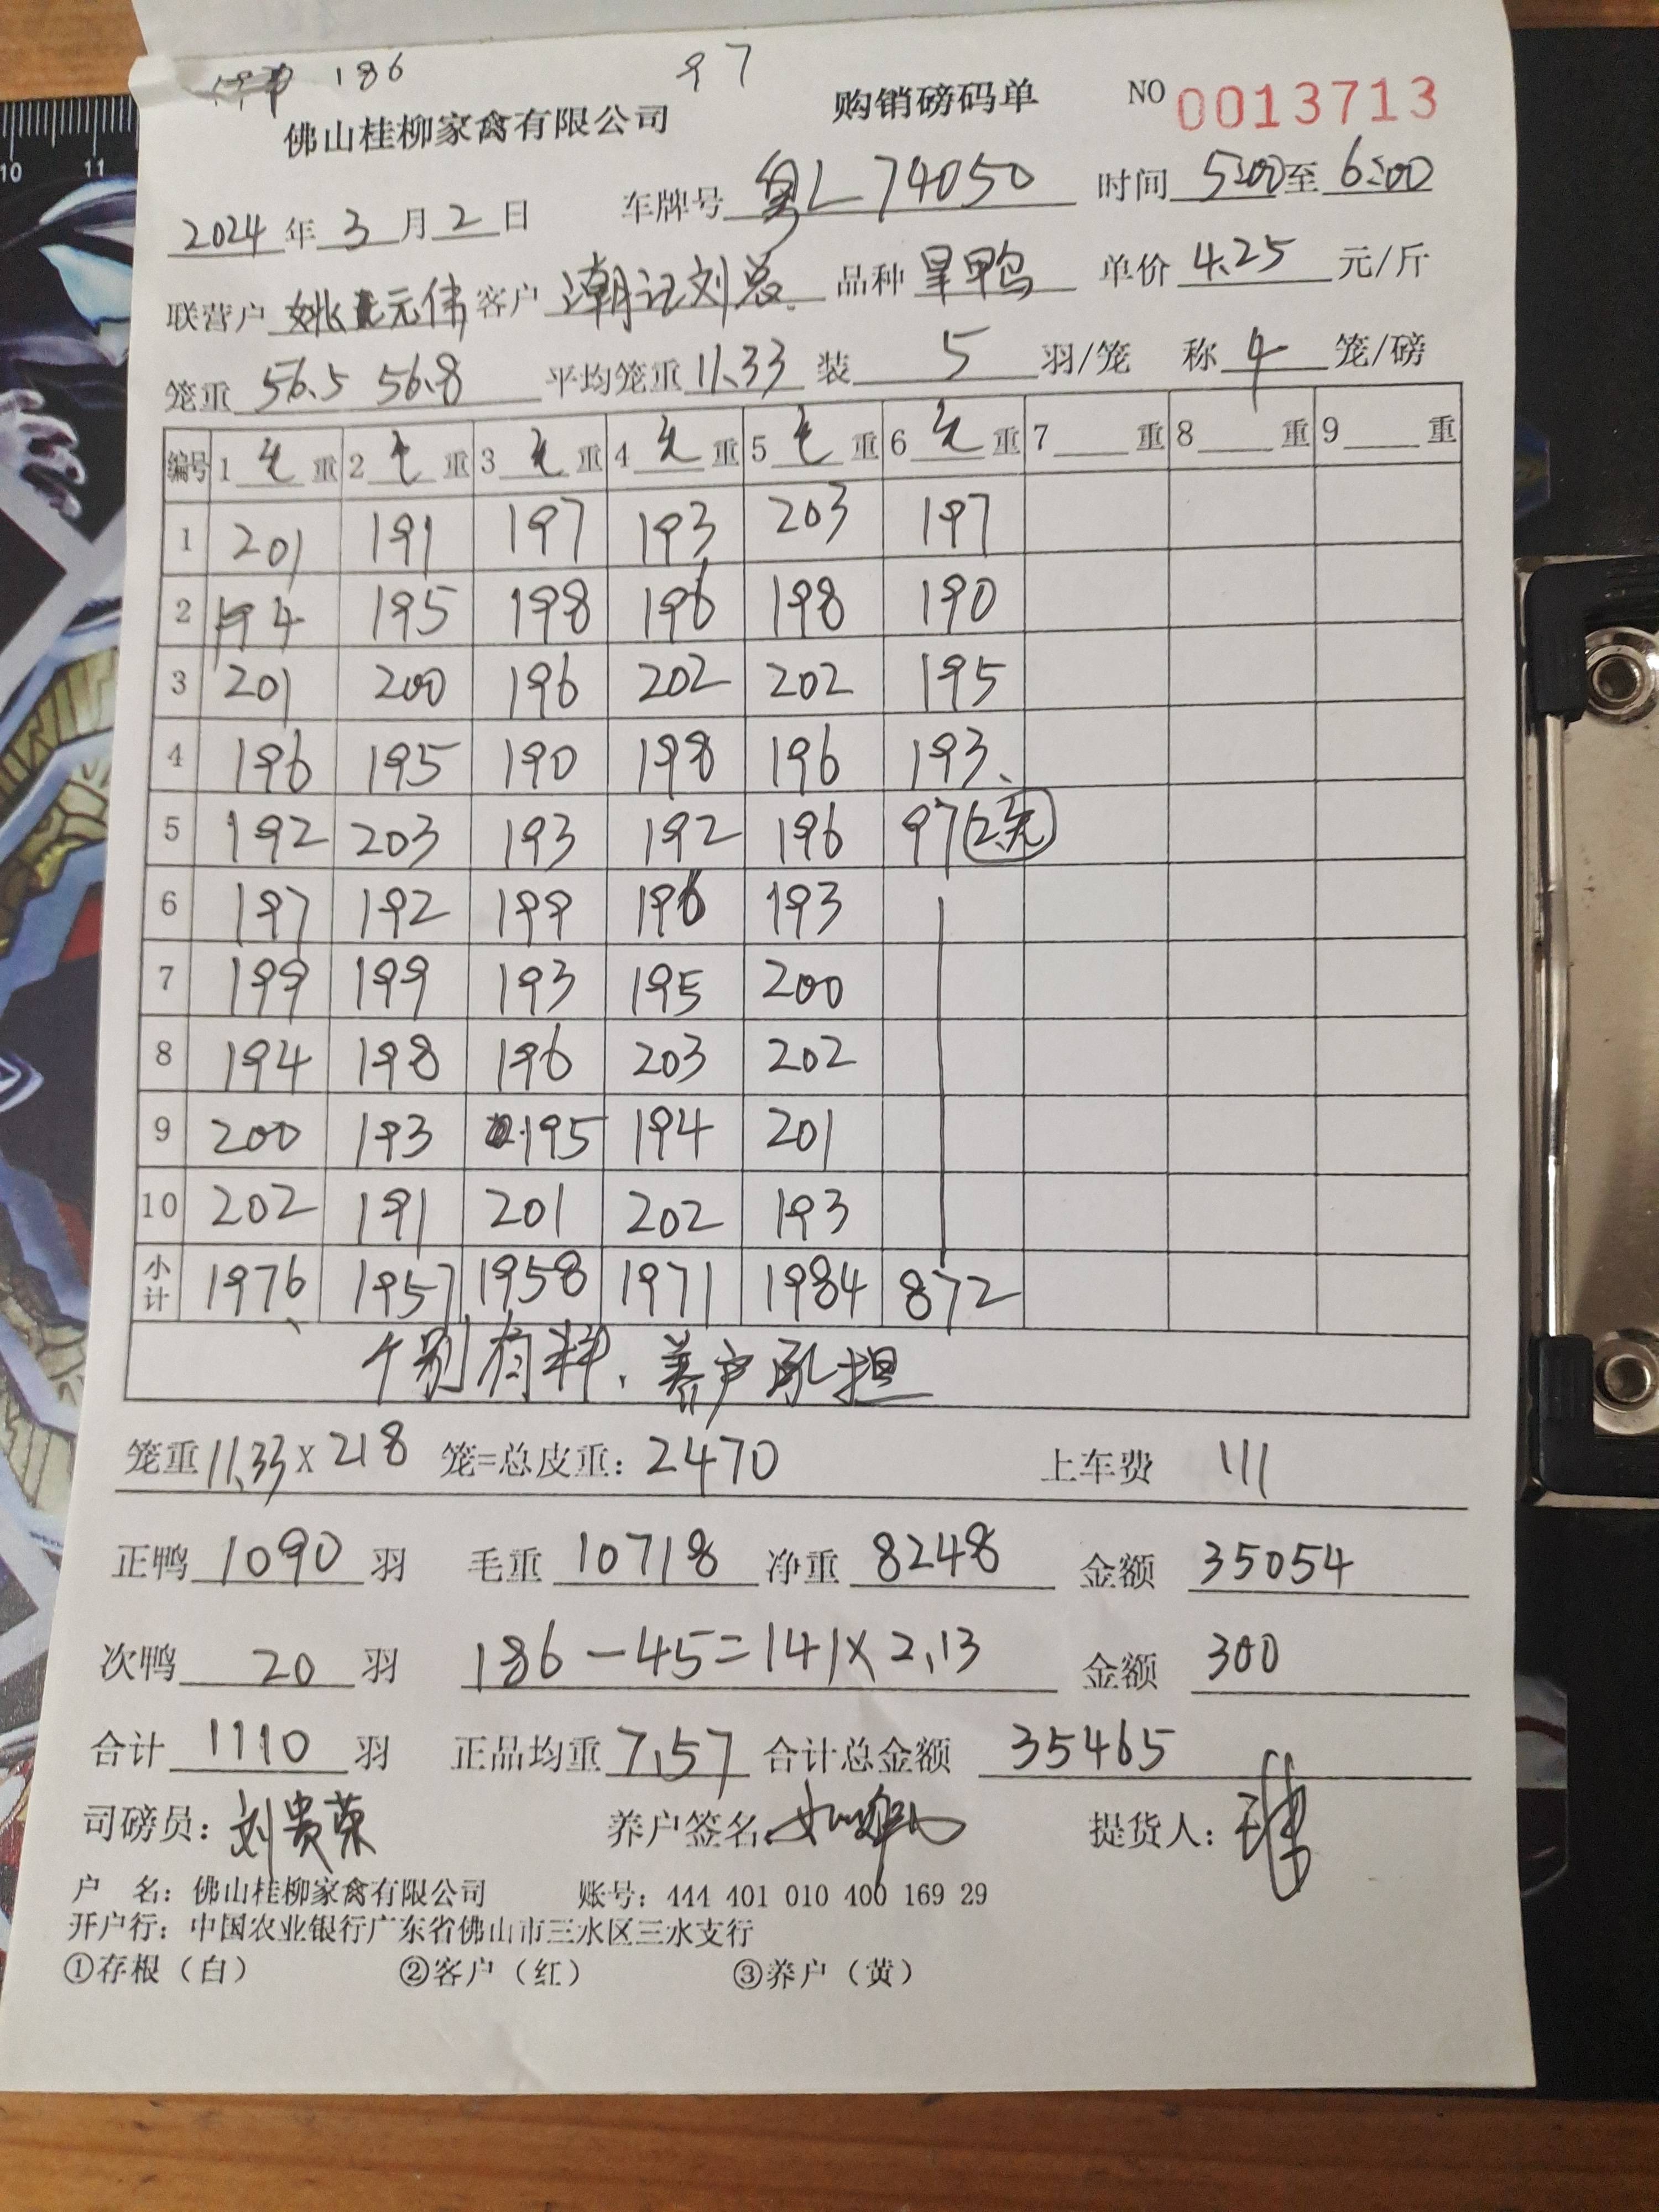 186 97
佛山桂柳家禽有限公司 购销磅码单 NO 0013713
2024年3月2日 车牌号 粤L 74050 时间 5:00至6:00
联营户 姚元伟 客户 潮记刘总 品种 旱鸭 单价 4.25 元/斤
笼重 56.5 56.8 平均笼重 11.33 装 5 羽/笼 称 4 笼/磅
编号 1 毛 重 2 毛 重 3 毛 重 4 毛 重 5 毛 重 6 毛 重 7 重 8 重 9 重
1 201 191 197 193 203 197
2 194 195 198 196 198 190
3 201 200 196 202 202 195
4 196 195 190 198 196 193
5 192 203 193 192 196 97
6 197 192 199 196 193
7 199 199 193 195 200
8 194 198 196 203 202
9 200 193 195 194 201
10 202 191 201 202 193
小计 1976 1957 1958 1971 1984 872
个别有料、养户承担
笼重 11.33 x 218 笼=总皮重: 2470 上车费 111
正鸭 1090 羽 毛重 10718 净重 8248 金额 35054
次鸭 20 羽 186 - 45 = 141 x 2.13 金额 300
合计 1110 羽 正品均重 7.57 合计总金额 35465
司磅员: 刘贵荣 养户签名 提货人:
户 名: 佛山桂柳家禽有限公司 账号: 444 401 010 400 169 29
开户行: 中国农业银行广东省佛山市三水区三水支行
①存根（白） ②客户（红） ③养户（黄）